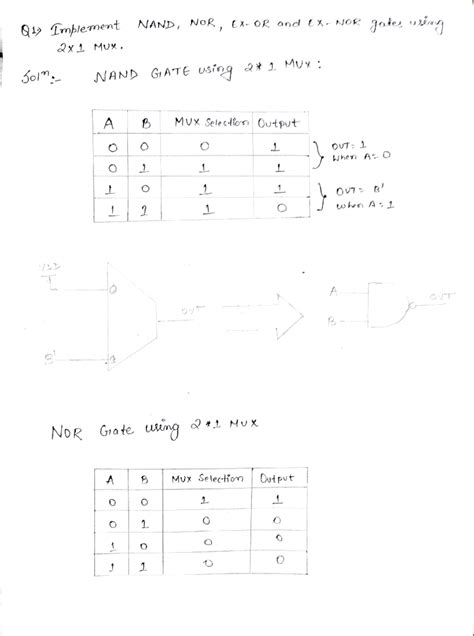 Q1) Implement NAND, NOR, EX-OR and EX-NOR gates using
2x1 MUX.
Solⁿ:- NAND GATE using 2*1 MUX:
A B MUX Selection Output
0 0 0 1
0 1 1 1
1 0 1 1
1 1 1 0
OUT= 1
when A=0
OUT= B'
when A=1
0
OUT
B'
A
B
OUT
NOR Gate using 2*1 MUX
A B MUX Selection Output
0 0 1 1
0 1 0 0
1 0 0 0
1 1 0 0